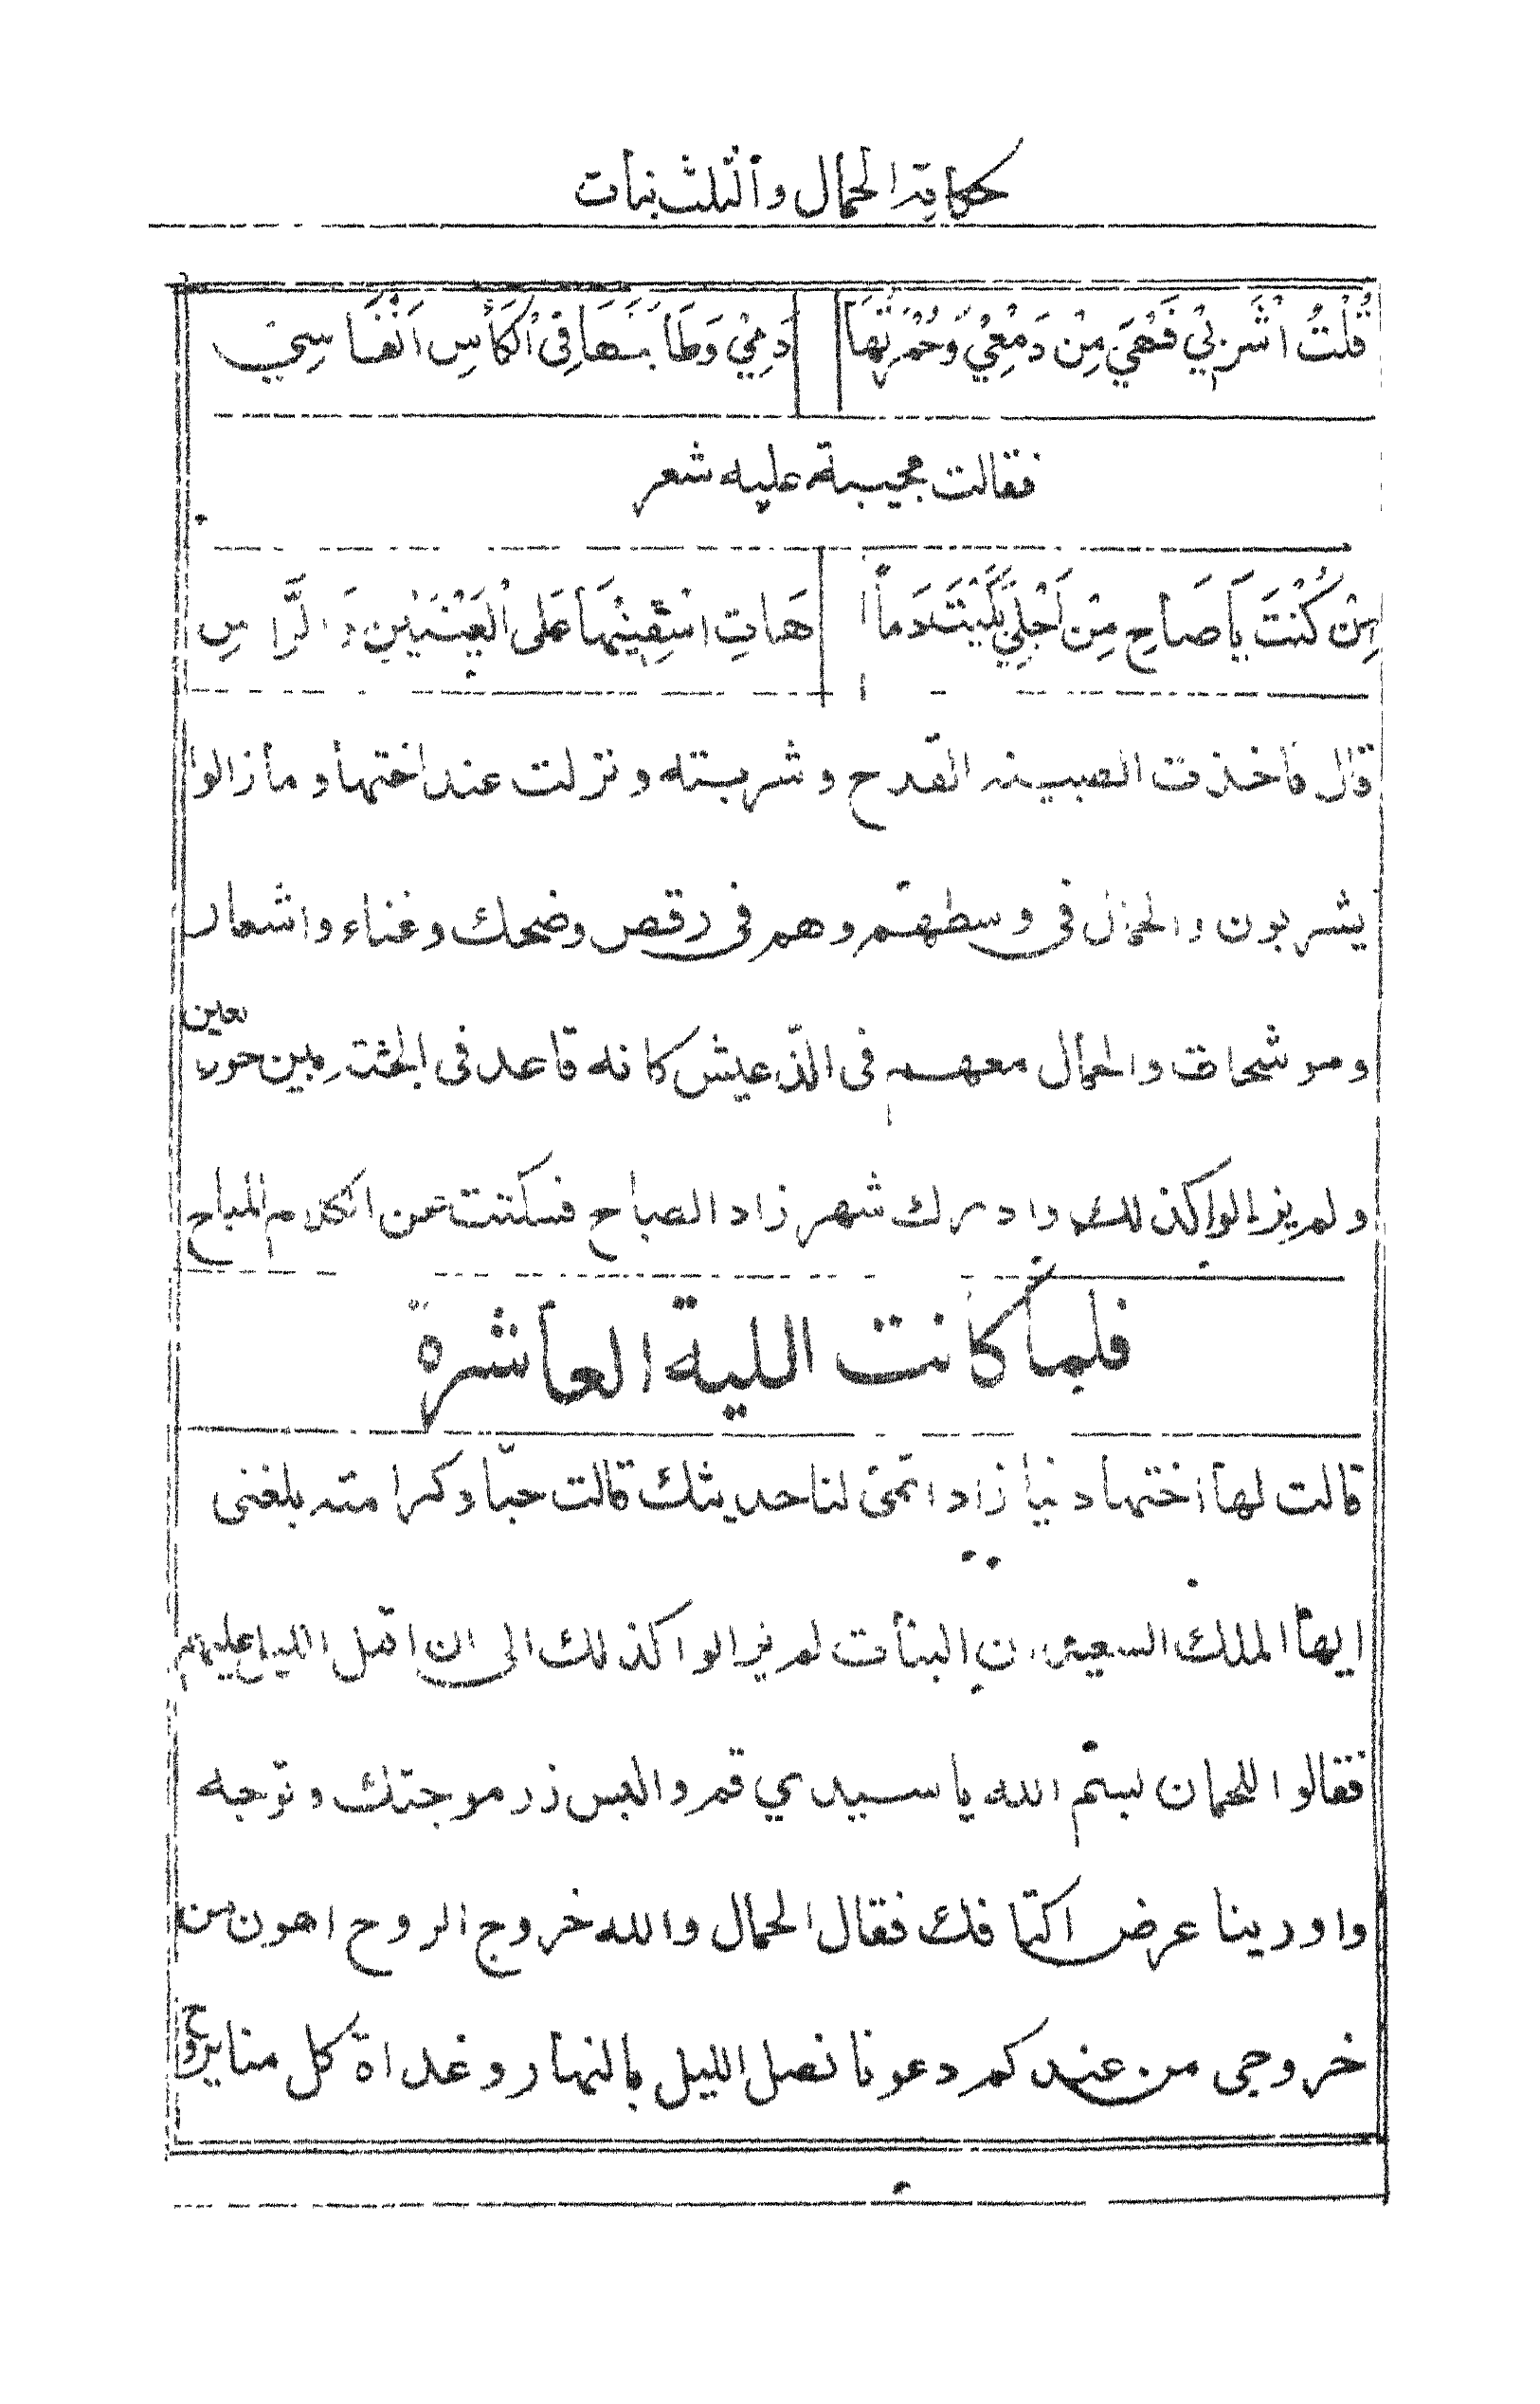 حكاية الحمال والثلث بنات
قُلْتُ اشْرَبِيْ فَهْيَ مِنْ دَمْعِيْ وَحُمْرَتُهَا دَمِيْ وَطَابَخَهَا فِى الْكَأْسِ اَنْفَاسِيْ
فقالت مجيبة عليه شعر
اِنْ كُنْتَ يَا صَاحِ مِنْ اَجْلِيْ بَكَيْتَ دَماً هَاتِ اسْقِيْنِهَا عَلَى الْعَيْنَيْنِ وَالرَّاسِ
قال فاخذت الصبية القدح وشربته ونزلت عند اختها وما زالوا
يشربون والحمال فى وسطهم وهم فى رقص وضحك وغناء واشعار
وموشحات والحمال معهم فى الذ عيش كانه قاعد فى الجنة بين حور عين
ولم يزالوا كذلك وادرك شهرزاد الصباح فسكتت عن الكلام المباح
فلما كانت الليلة العاشرة
قالت لها اختها دنيا زاد اتمى لنا حديثك قالت حبا وكرامة بلغنى
ايها الملك السعيد ان البنات لم يزالوا كذلك الى ان اقبل الليل عليهم
فقالوا للحمال بسم الله يا سيدي قم والبس زرموجتك وتوجه
واورينا عرض اكتافك فقال الحمال والله خروج الروح اهون من
خروجى من عندكم دعونا نصل الليل بالنهار وغداة كل منا يروح